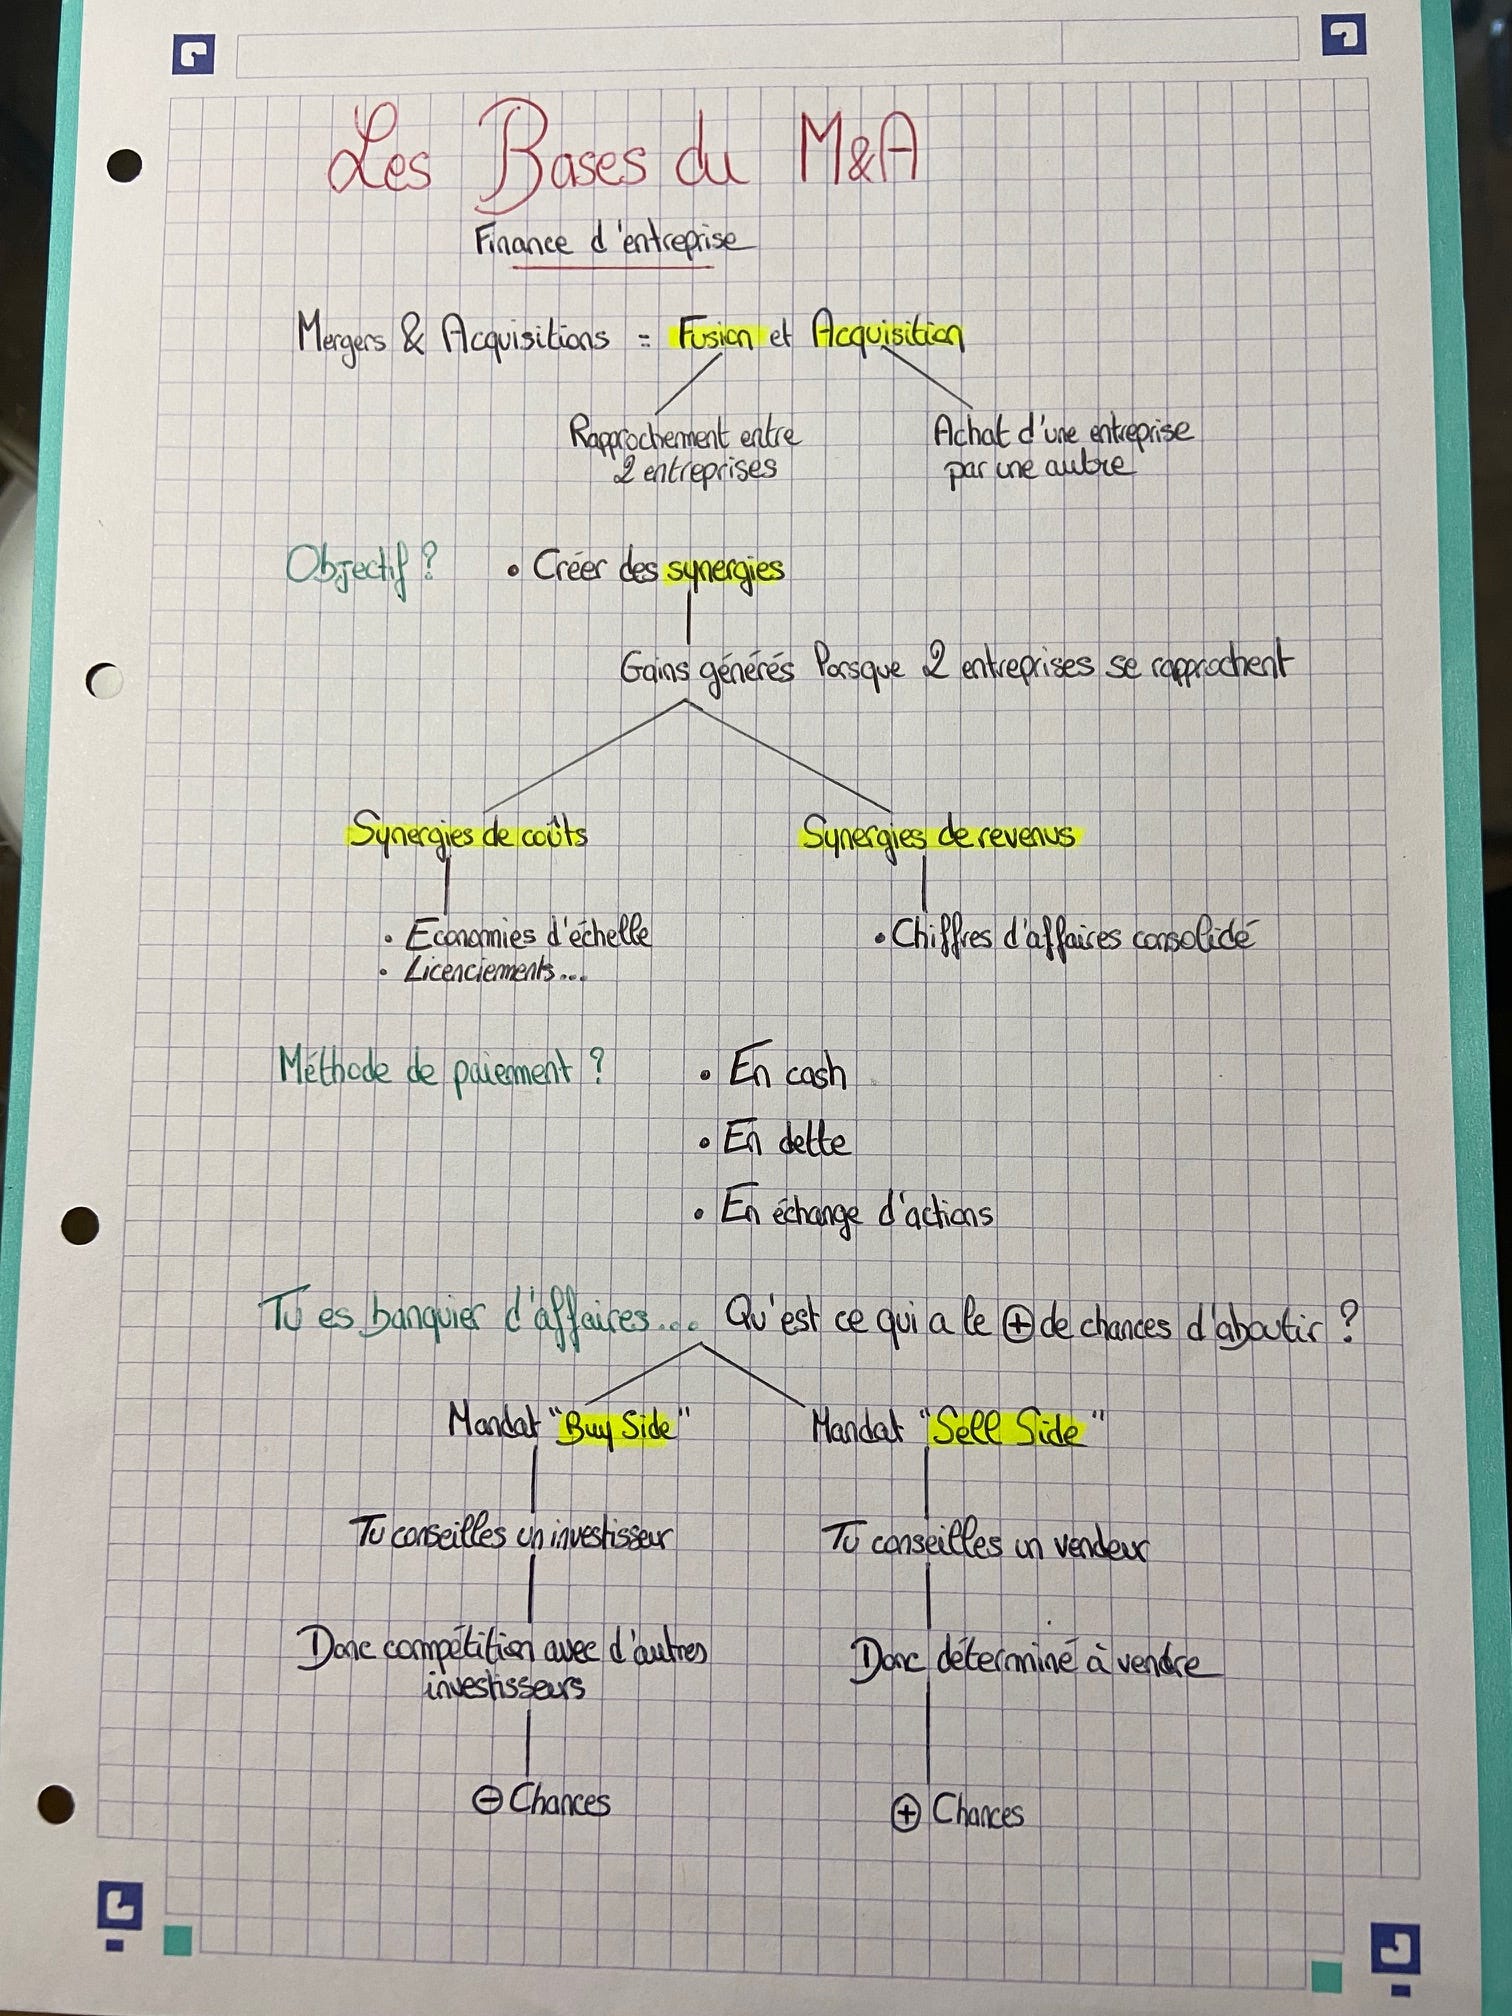 Les Bases du M&A
Finance d'entreprise
Mergers & Acquisitions = Fusion et Acquisition
Rapprochement entre
2 entreprises
Achat d'une entreprise
par une autre
Objectif ? • Créer des synergies
Gains générés lorsque 2 entreprises se rapprochent
Synergies de coûts
Synergies de revenus
• Economies d'échelle
• Licenciements...
• Chiffres d'affaires consolidé
Méthode de paiement ? • En cash
• En dette
• En échange d'actions
Tu es banquier d'affaires... Qu'est ce qui a le ⊕ de chances d'aboutir ?
Mandat "Buy Side"
Mandat "Sell Side"
Tu conseilles un investisseur
Tu conseilles un vendeur
Donc compétition avec d'autres
investisseurs
Donc déterminé à vendre
⊖ Chances
⊕ Chances